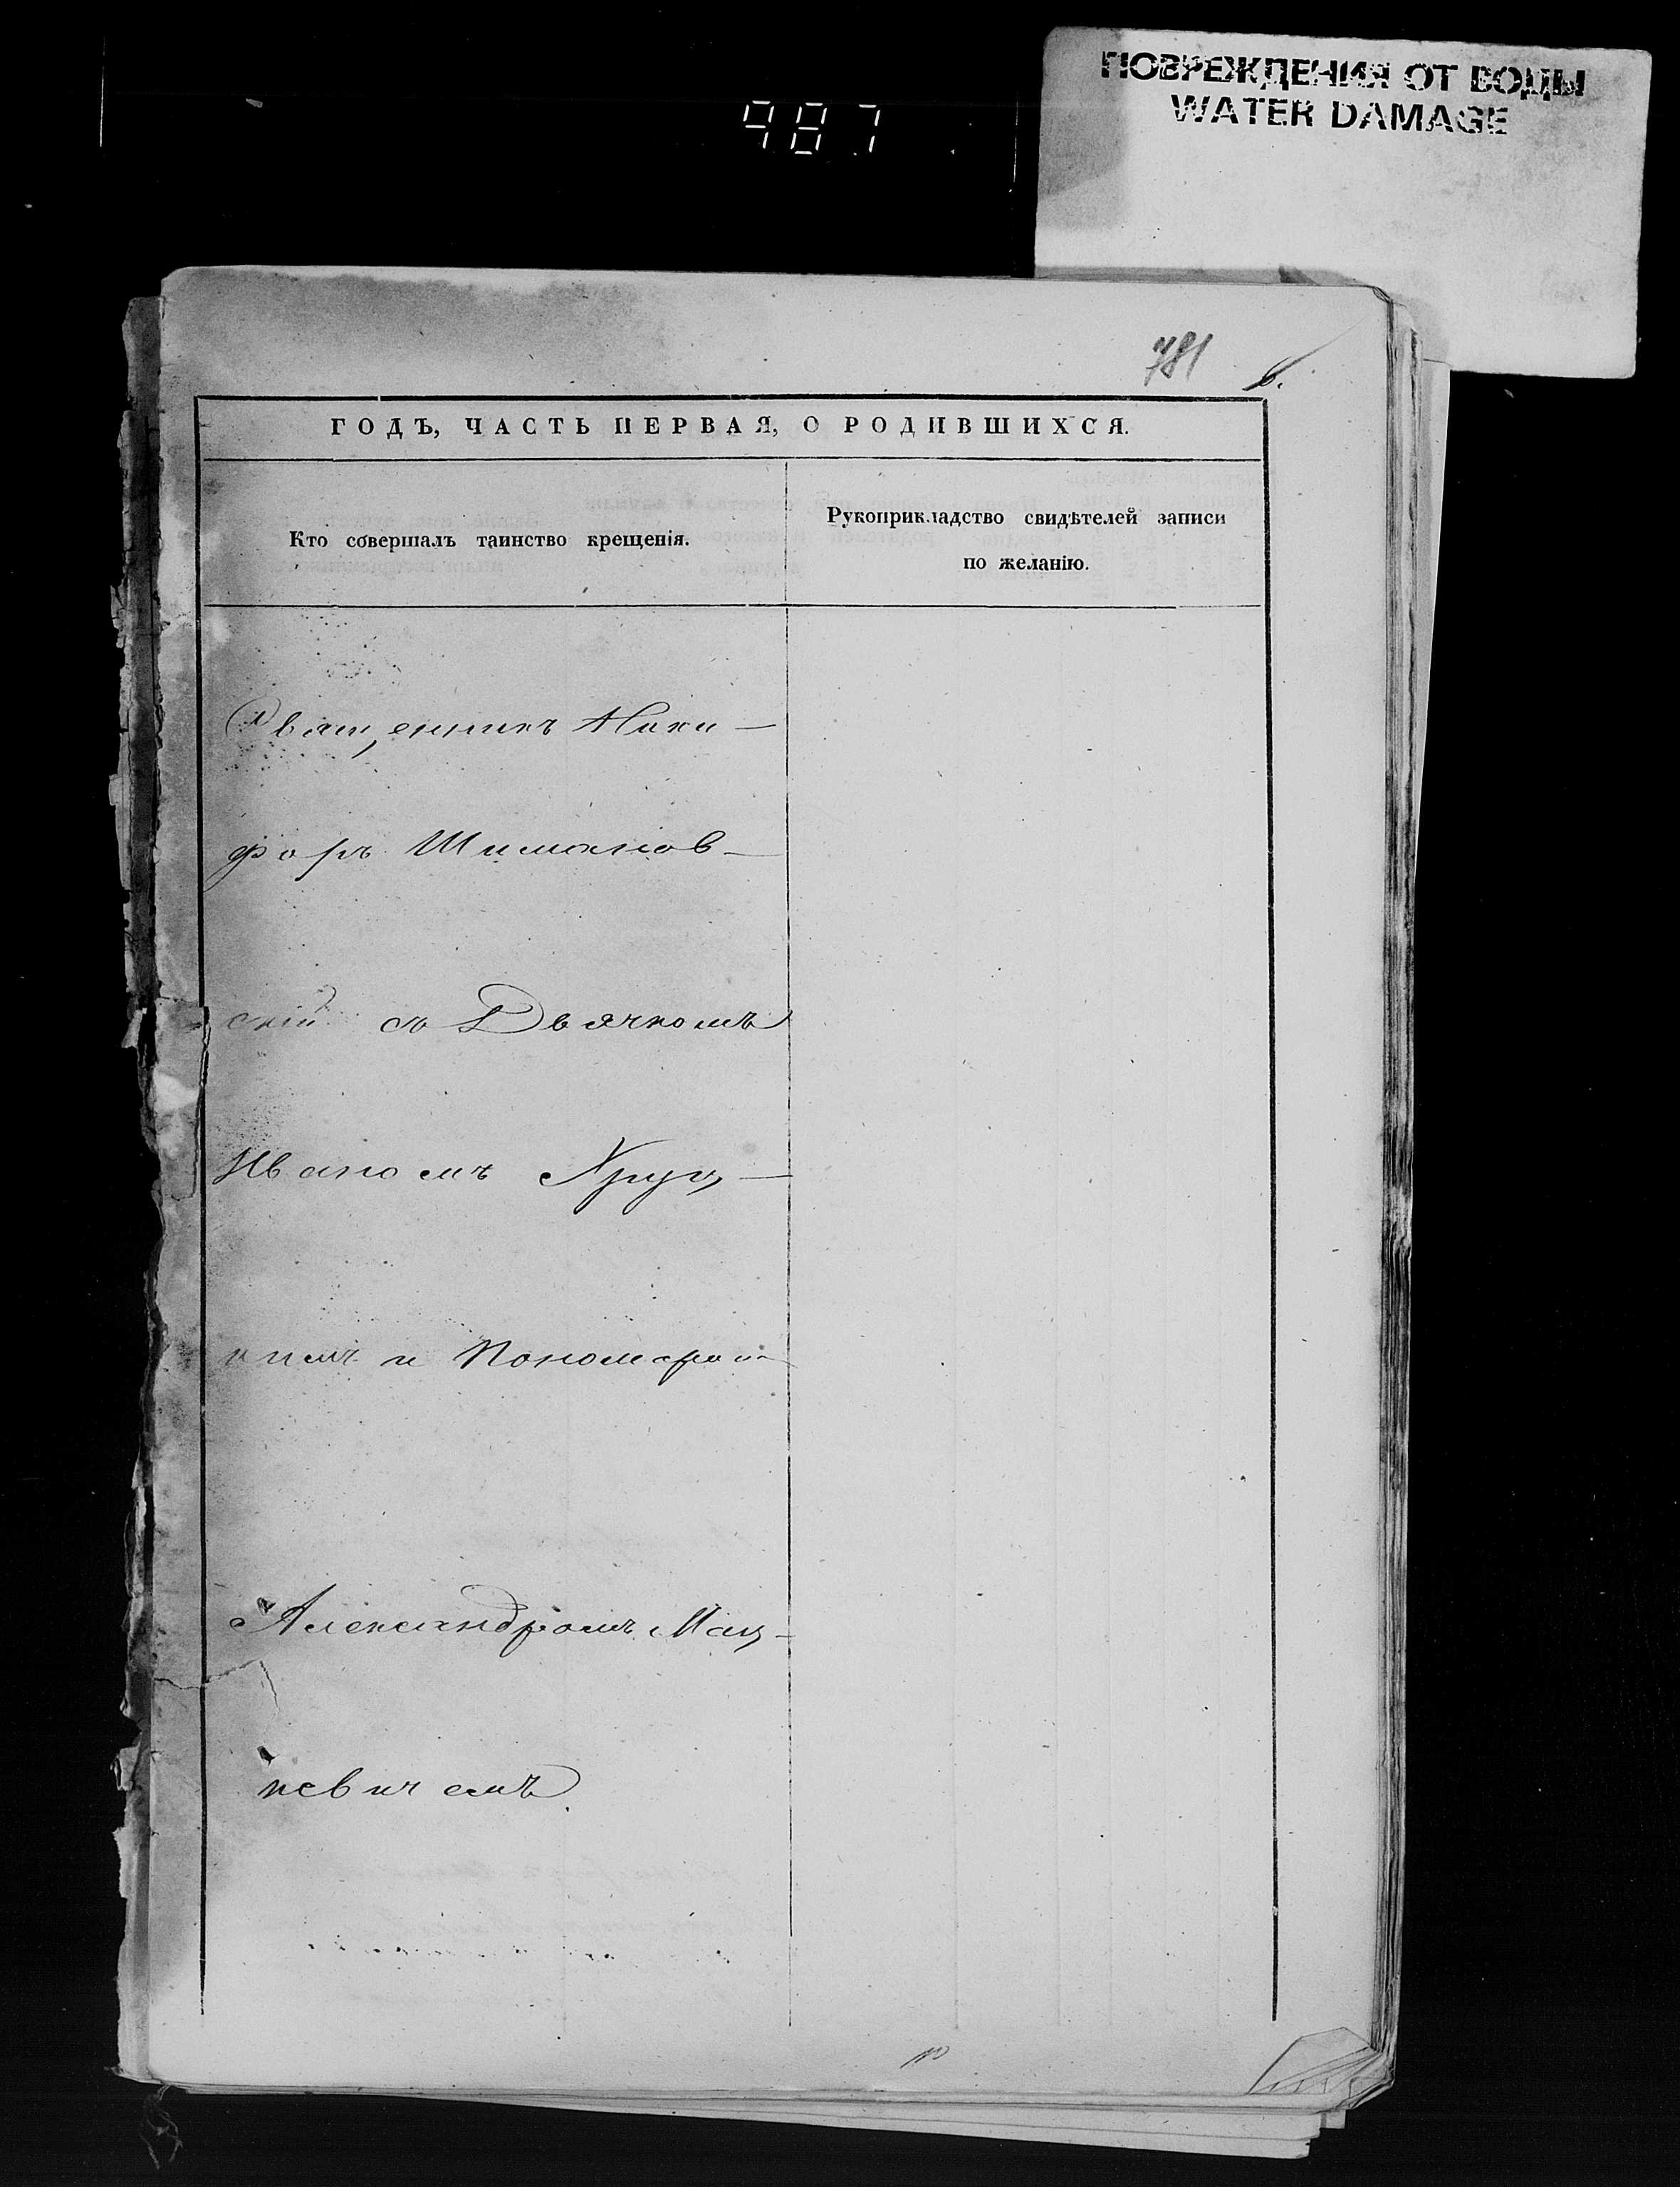 ПОВРЕЖДЕНИЯ ОТ ВОДЫ
WATER DAMAGE
987
781
6.
ГОДЪ, ЧАСТЬ ПЕРВАЯ, О РОДИВШИХСЯ.
Кто совершалъ таинство крещенія.
Рукоприкладство свидѣтелей записи
по желанію.
Священникъ Ники—
форъ Шиманов—
скій съ Дьячкомъ
Иваномъ Хруц—
кимъ и Пономаромъ
Александромъ Мац—
кевичемъ.